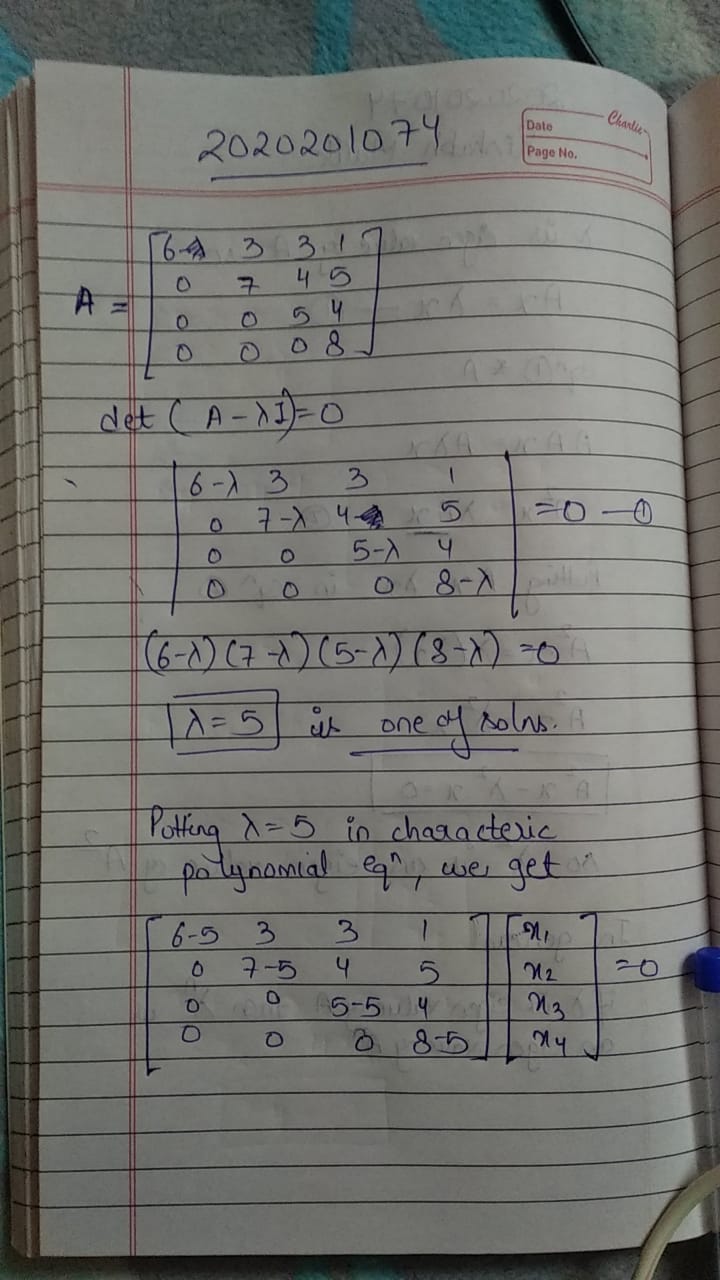 2020201074
Date Charlie
Page No.
A = [6 3 3 1
0 7 4 5
0 0 5 4
0 0 0 8]
det (A-λI)=0
|6-λ 3 3 1
0 7-λ 4 5
0 0 5-λ 4
0 0 0 8-λ| =0 —①
(6-λ)(7-λ)(5-λ)(8-λ)=0
λ=5 is one of solns.
Putting λ=5 in characteric
polynomial eqⁿ, we get
[6-5 3 3 1] [x₁
0 7-5 4 5 x₂ =0
0 0 5-5 4 x₃
0 0 0 8-5] x₄]